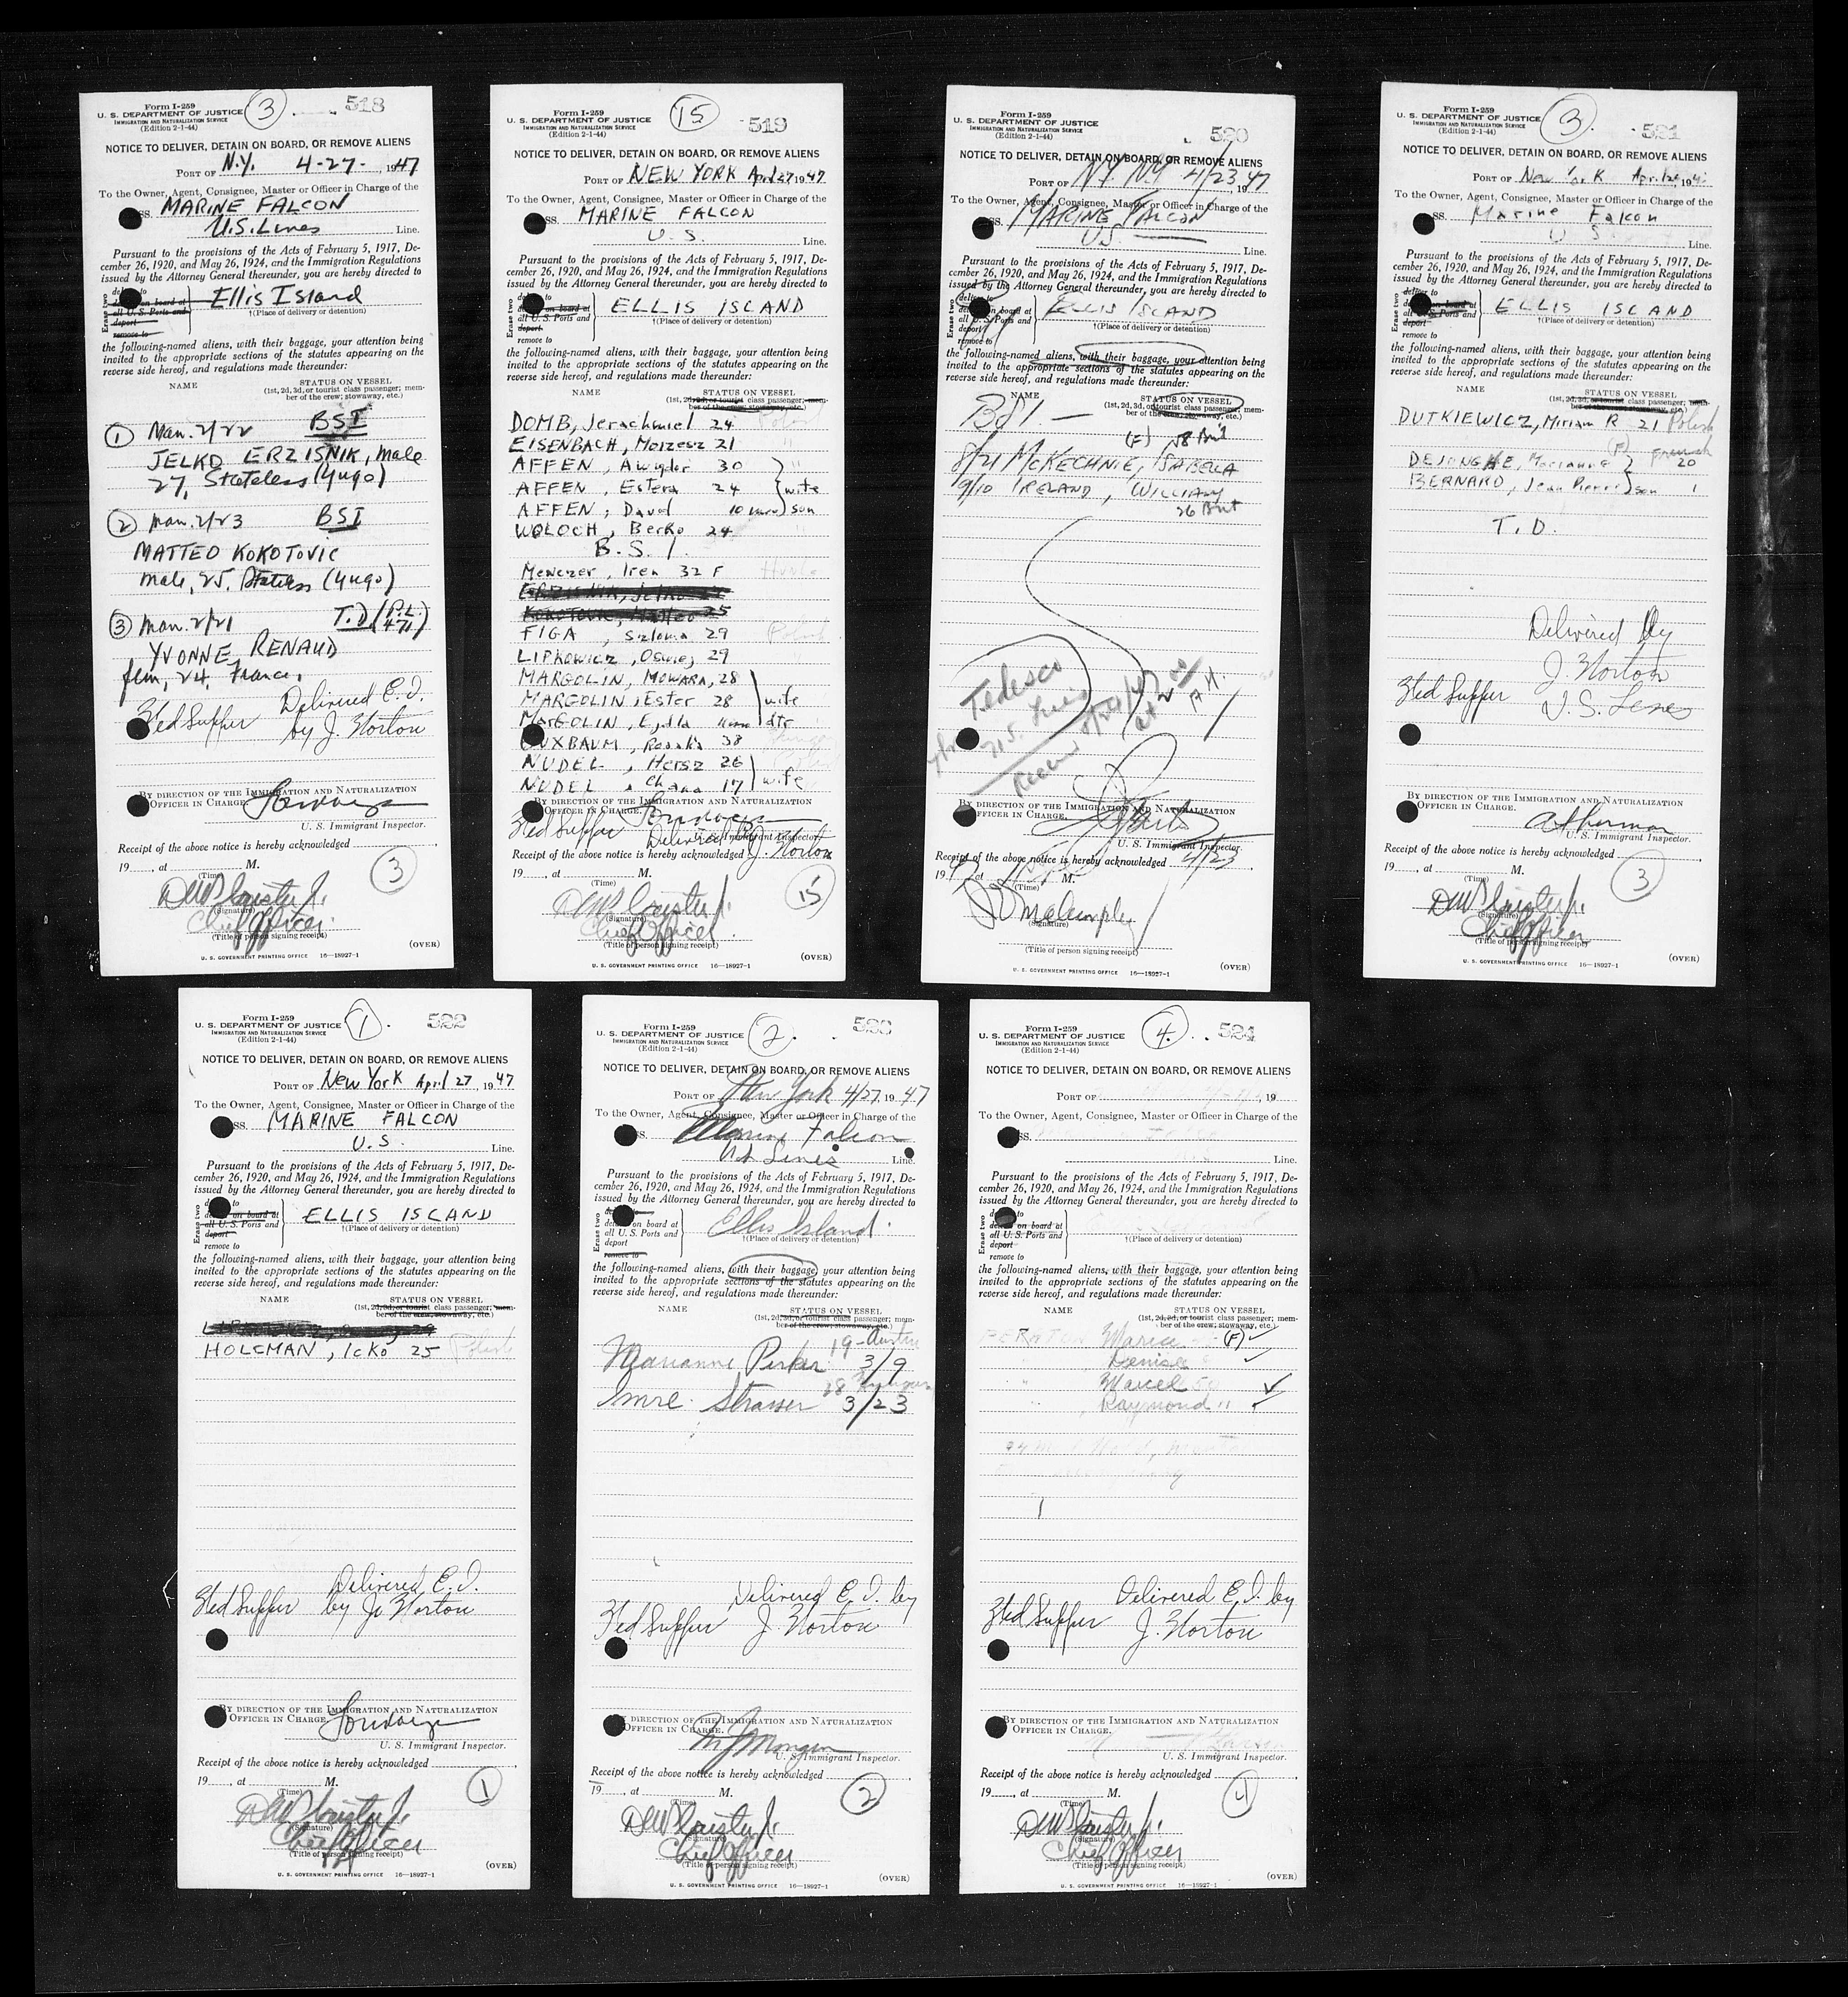 Form I-259
U. S. DEPARTMENT OF JUSTICE
IMMIGRATION AND NATURALIZATION SERVICE
(Edition 2-1-44)
3
518
NOTICE TO DELIVER, DETAIN ON BOARD, OR REMOVE ALIENS
PORT OF N.Y. 4-27-, 1947
To the Owner, Agent, Consignee, Master or Officer in Charge of the
SS. MARINE FALCON
U.S. Lines Line.
Pursuant to the provisions of the Acts of February 5, 1917, De-
cember 26, 1920, and May 26, 1924, and the Immigration Regulations
issued by the Attorney General thereunder, you are hereby directed to
Erase two
to
on board at
all U. S. Ports and
deport
remove to
Ellis Island
†(Place of delivery or detention)
the following-named aliens, with their baggage, your attention being
invited to the appropriate sections of the statutes appearing on the
reverse side hereof, and regulations made thereunder:
NAME STATUS ON VESSEL
(1st, 2d, 3d, or tourist class passenger; mem-
ber of the crew; stowaway, etc.)
1 Man. 2/22 BSI
JELKO ERZISNIK, male
27, Stateless (Yugo)
2 Man. 2/23 BSI
MATTEO KOKOTOVIC
male, 25, Stateless (Yugo)
3 Man. 2/21 T.D (P.L. 471)
YVONNE RENAUD
fem, 24, France,
Delivered E.I.
by J. Norton
BY DIRECTION OF THE IMMIGRATION AND NATURALIZATION
OFFICER IN CHARGE.
U. S. Immigrant Inspector.
Receipt of the above notice is hereby acknowledged
19, at M.
(Time)
3
(Signature)
Chief Officer
(Title of person signing receipt)
(OVER)
U. S. GOVERNMENT PRINTING OFFICE 16—18927-1
Form I-259
U. S. DEPARTMENT OF JUSTICE
IMMIGRATION AND NATURALIZATION SERVICE
(Edition 2-1-44)
15
519
NOTICE TO DELIVER, DETAIN ON BOARD, OR REMOVE ALIENS
PORT OF NEW YORK April 27 1947
To the Owner, Agent, Consignee, Master or Officer in Charge of the
SS. MARINE FALCON
U. S. Line.
Pursuant to the provisions of the Acts of February 5, 1917, De-
cember 26, 1920, and May 26, 1924, and the Immigration Regulations
issued by the Attorney General thereunder, you are hereby directed to
Erase two
to
on board at
all U. S. Ports and
deport
remove to
ELLIS ISLAND
†(Place of delivery or detention)
the following-named aliens, with their baggage, your attention being
invited to the appropriate sections of the statutes appearing on the
reverse side hereof, and regulations made thereunder:
NAME STATUS ON VESSEL
(1st, 2d, 3d, or tourist class passenger; mem-
ber of the crew; stowaway, etc.)
DOMB, Jerachmiel 24
EISENBACH, Mojzesz 21
AFFEN, Awigdor 30
AFFEN, Estera 24 wife
AFFEN, Dawd 10 mos son
WOLOCH, Berko 24
B. S. I.
Menczer, Iren 32 F
KOKOTOVIC, Matteo 25
FIGA, Szloma 29
LIPKOWICZ, 29
MARGOLIN, MOWARA, 28
MARGOLIN, Ester 28 wife
MARGOLIN, dtr
LUXBAUM, 38
NUDEL, Hersz 26
NUDEL, Chana 17 wife
BY DIRECTION OF THE IMMIGRATION AND NATURALIZATION
OFFICER IN CHARGE.
U. S. Immigrant Inspector.
Delivered by J. Norton
Receipt of the above notice is hereby acknowledged
19, at M.
(Time)
15
(Signature)
Chief Officer
(Title of person signing receipt)
(OVER)
U. S. GOVERNMENT PRINTING OFFICE 16—18927-1
Form I-259
U. S. DEPARTMENT OF JUSTICE
IMMIGRATION AND NATURALIZATION SERVICE
(Edition 2-1-44)
520
NOTICE TO DELIVER, DETAIN ON BOARD, OR REMOVE ALIENS
PORT OF NY NY 4/23 1947
To the Owner, Agent, Consignee, Master or Officer in Charge of the
SS. MARINE FALCON
US Line.
Pursuant to the provisions of the Acts of February 5, 1917, De-
cember 26, 1920, and May 26, 1924, and the Immigration Regulations
issued by the Attorney General thereunder, you are hereby directed to
Erase two
deliver to
on board at
all U. S. Ports and
deport
remove to
ELLIS ISLAND
†(Place of delivery or detention)
the following-named aliens, with their baggage, your attention being
invited to the appropriate sections of the statutes appearing on the
reverse side hereof, and regulations made thereunder:
NAME STATUS ON VESSEL
(1st, 2d, 3d, or tourist class passenger; mem-
ber of the crew; stowaway, etc.)
BSI —
(F) 58 Brit
8/21 McKECHNIE, ISABELLA
9/10 IRELAND, WILLIAM
26 Brit
Tedesco
BY DIRECTION OF THE IMMIGRATION AND NATURALIZATION
OFFICER IN CHARGE.
U. S. Immigrant Inspector.
Receipt of the above notice is hereby acknowledged 4/23
1947 at M.
(Time)
(Signature)
(Title of person signing receipt)
(OVER)
U. S. GOVERNMENT PRINTING OFFICE 16—18927-1
Form I-259
U. S. DEPARTMENT OF JUSTICE
IMMIGRATION AND NATURALIZATION SERVICE
(Edition 2-1-44)
3.
521
NOTICE TO DELIVER, DETAIN ON BOARD, OR REMOVE ALIENS
PORT OF New York April 194
To the Owner, Agent, Consignee, Master or Officer in Charge of the
SS. Marine Falcon
U S Line.
Pursuant to the provisions of the Acts of February 5, 1917, De-
cember 26, 1920, and May 26, 1924, and the Immigration Regulations
issued by the Attorney General thereunder, you are hereby directed to
Erase two
deliver to
on board at
all U. S. Ports and
deport
remove to
ELLIS ISLAND
†(Place of delivery or detention)
the following-named aliens, with their baggage, your attention being
invited to the appropriate sections of the statutes appearing on the
reverse side hereof, and regulations made thereunder:
NAME STATUS ON VESSEL
(1st, 2d, 3d, or tourist class passenger; mem-
ber of the crew; stowaway, etc.)
DUTKIEWICZ, Miriam R 21 Polish
(F) French
DEJONGHE, Marianne 20
BERNARD, Jean Pierre son 1
T. D.
Delivered by
J. Norton
U. S. Lines
BY DIRECTION OF THE IMMIGRATION AND NATURALIZATION
OFFICER IN CHARGE.
U. S. Immigrant Inspector.
Receipt of the above notice is hereby acknowledged
19, at M.
(Time)
3
(Signature)
Chief Officer
(Title of person signing receipt)
(OVER)
U. S. GOVERNMENT PRINTING OFFICE 16—18927-1
Form I-259
U. S. DEPARTMENT OF JUSTICE
IMMIGRATION AND NATURALIZATION SERVICE
(Edition 2-1-44)
1.
522
NOTICE TO DELIVER, DETAIN ON BOARD, OR REMOVE ALIENS
PORT OF New York April 27, 1947
To the Owner, Agent, Consignee, Master or Officer in Charge of the
SS. MARINE FALCON
U. S. Line.
Pursuant to the provisions of the Acts of February 5, 1917, De-
cember 26, 1920, and May 26, 1924, and the Immigration Regulations
issued by the Attorney General thereunder, you are hereby directed to
Erase two
to
on board at
all U. S. Ports and
deport
remove to
ELLIS ISLAND
†(Place of delivery or detention)
the following-named aliens, with their baggage, your attention being
invited to the appropriate sections of the statutes appearing on the
reverse side hereof, and regulations made thereunder:
NAME STATUS ON VESSEL
(1st, 2d, 3d, or tourist class passenger; mem-
ber of the crew; stowaway, etc.)
HOLCMAN, Icko 25 Polish
Delivered E. I.
by J. Norton
BY DIRECTION OF THE IMMIGRATION AND NATURALIZATION
OFFICER IN CHARGE.
U. S. Immigrant Inspector.
Receipt of the above notice is hereby acknowledged
19, at M.
(Time)
1
(Signature)
Chief Officer
(Title of person signing receipt)
(OVER)
U. S. GOVERNMENT PRINTING OFFICE 16—18927-1
Form I-259
U. S. DEPARTMENT OF JUSTICE
IMMIGRATION AND NATURALIZATION SERVICE
(Edition 2-1-44)
2.
NOTICE TO DELIVER, DETAIN ON BOARD, OR REMOVE ALIENS
PORT OF New York 4/27, 1947
To the Owner, Agent, Consignee, Master or Officer in Charge of the
SS. Marine Falcon
US Lines Line.
Pursuant to the provisions of the Acts of February 5, 1917, De-
cember 26, 1920, and May 26, 1924, and the Immigration Regulations
issued by the Attorney General thereunder, you are hereby directed to
Erase two
on board at
all U. S. Ports and
deport
remove to
Ellis Island
†(Place of delivery or detention)
the following-named aliens, with their baggage, your attention being
invited to the appropriate sections of the statutes appearing on the
reverse side hereof, and regulations made thereunder:
NAME STATUS ON VESSEL
(1st, 2d, 3d, or tourist class passenger; mem-
ber of the crew; stowaway, etc.)
19 - Austria
Marianne Perker 3/9
28
Imre Strasser 3/23
Delivered E. I. by
J. Norton
BY DIRECTION OF THE IMMIGRATION AND NATURALIZATION
OFFICER IN CHARGE.
U. S. Immigrant Inspector.
Receipt of the above notice is hereby acknowledged
19, at M.
(Time)
2
(Signature)
Chief Officer
(Title of person signing receipt)
(OVER)
U. S. GOVERNMENT PRINTING OFFICE 16—18927-1
Form I-259
U. S. DEPARTMENT OF JUSTICE
IMMIGRATION AND NATURALIZATION SERVICE
(Edition 2-1-44)
4.
524
NOTICE TO DELIVER, DETAIN ON BOARD, OR REMOVE ALIENS
PORT OF 19
To the Owner, Agent, Consignee, Master or Officer in Charge of the
SS.
Line.
Pursuant to the provisions of the Acts of February 5, 1917, De-
cember 26, 1920, and May 26, 1924, and the Immigration Regulations
issued by the Attorney General thereunder, you are hereby directed to
Erase two
on board at
all U. S. Ports and
deport
remove to
†(Place of delivery or detention)
the following-named aliens, with their baggage, your attention being
invited to the appropriate sections of the statutes appearing on the
reverse side hereof, and regulations made thereunder:
NAME STATUS ON VESSEL
(1st, 2d, 3d, or tourist class passenger; mem-
ber of the crew; stowaway, etc.)
Marie (F)
Denise
Marcel
Raymond
Delivered E. I. by
J. Norton
BY DIRECTION OF THE IMMIGRATION AND NATURALIZATION
OFFICER IN CHARGE.
U. S. Immigrant Inspector.
Receipt of the above notice is hereby acknowledged
19, at M.
(Time)
4
(Signature)
Chief Officer
(Title of person signing receipt)
(OVER)
U. S. GOVERNMENT PRINTING OFFICE 16—18927-1